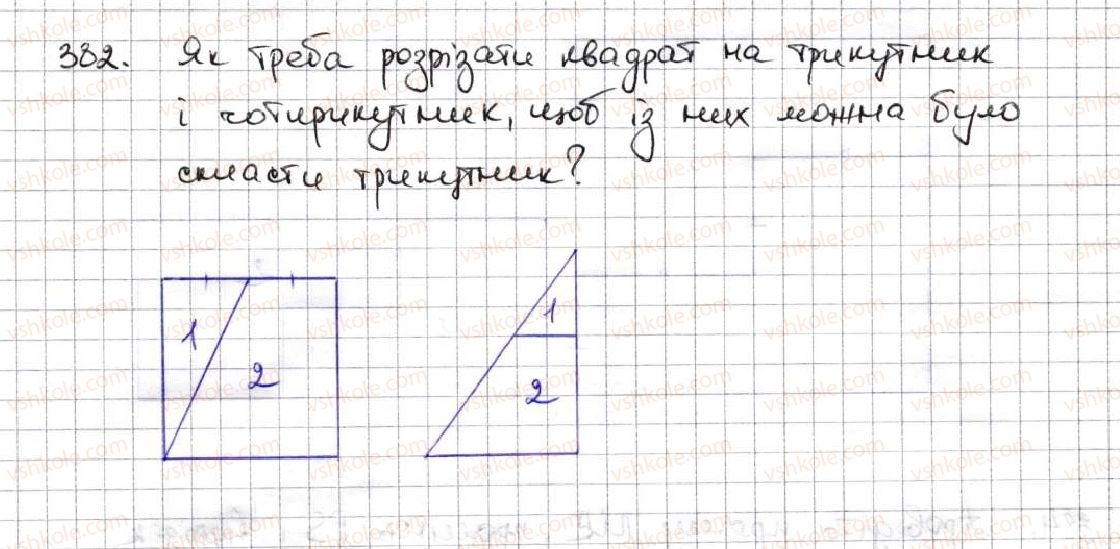 382. Як треба розрізати квадрат на трикутник
і чотирикутник, щоб із них можна було
скласти трикутник?
1
2
1
2